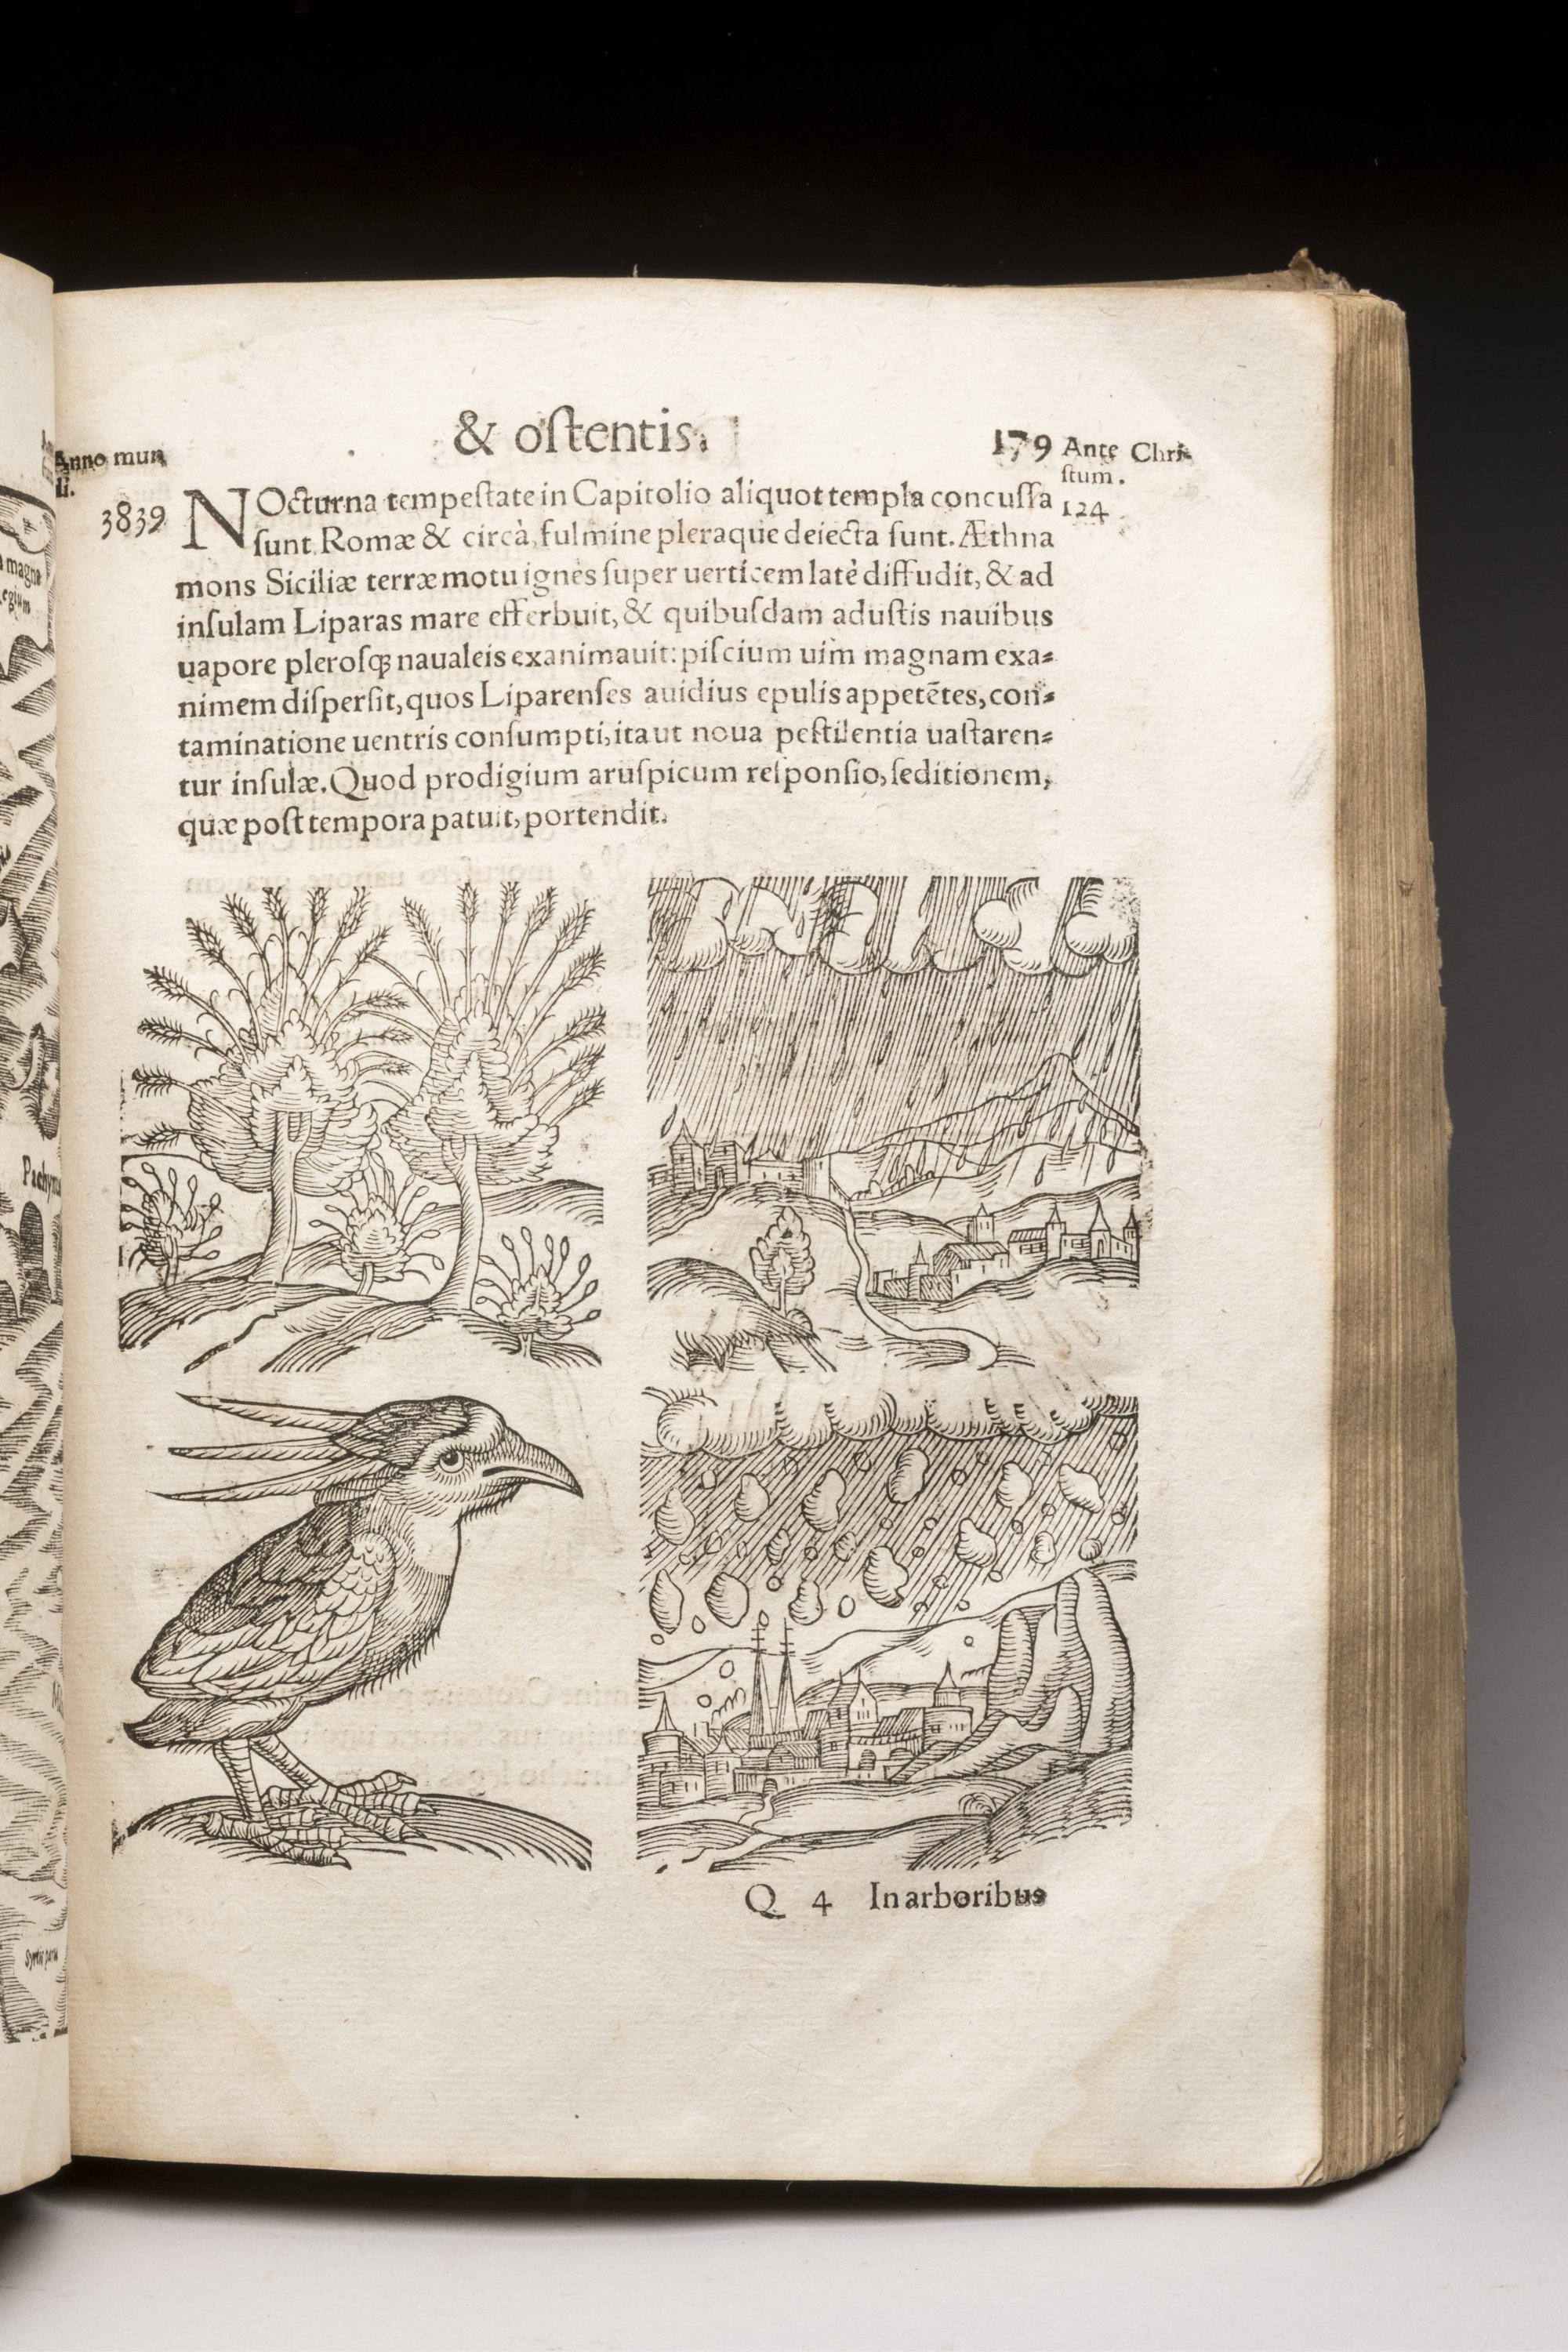 & oſtentis.
179
Anno mun
di.
3839
Ante Chri-
ſtum.
124
NOcturna tempeſtate in Capitolio aliquot templa concuſſa
ſunt, Romæ & circà, fulmine pleraque deiecta ſunt. Æthna
mons Siciliæ terræmotu ignes ſuper uerticem latè diffudit, & ad
inſulam Liparas mare efferbuit, & quibuſdam aduſtis nauibus
uapore pleroſqꝫ naualeis exanimauit: piſcium uim magnam exa-
nimem diſperſit, quos Liparenſes auidius epulis appetētes, con-
taminatione uentris conſumpti, ita ut noua peſtilentia uaſtaren-
tur inſulæ. Quod prodigium aruſpicum reſponſio, ſeditionem,
quæ poſt tempora patuit, portendit.
Q 4 In arboribus
magna
Syrtis parua